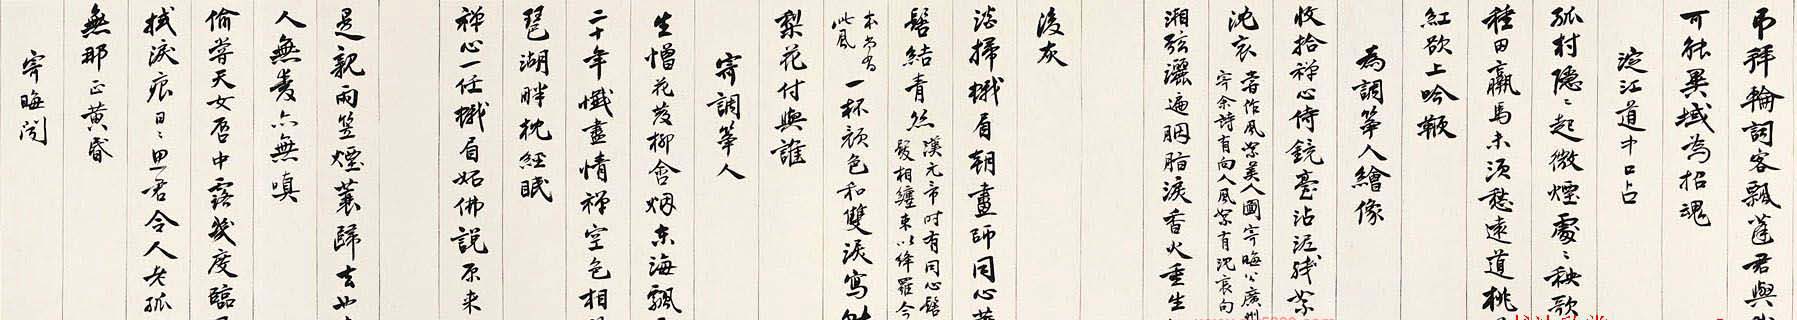 吊拜輪詞客飄蓬君與
可能異域為招魂
淀江道中口占
孤村隱〻起微煙處〻秧歌
種田羸馬未須愁遠道桃
紅欲上吟鞭
為調箏人繪像
收拾禪心侍鏡臺沾泥殘絮
沈哀 曾作風絮美人圖寄晦公廣州
寄余詩有向人風絮有沈哀句
湘弦灑遍胭脂淚香火重生
後灰
淡掃蛾眉朝畫師同心
髻結青絲 漢元帝時有同心髻
髮相纏束以絳羅今
本尚有
此風 一杯顏色和雙淚寫
梨花付與誰
寄調箏人
生憎花發柳含烟東海飄
二十年懺盡情禪空色相
琵湖畔枕經眠
禪心一任蛾眉妬佛說原來
是親雨笠煙蓑歸去也
人無愛亦無嗔
偷嘗天女唇中露幾度臨
拭淚痕日〻思君令人老孤
無那正黃昏
寄晦聞